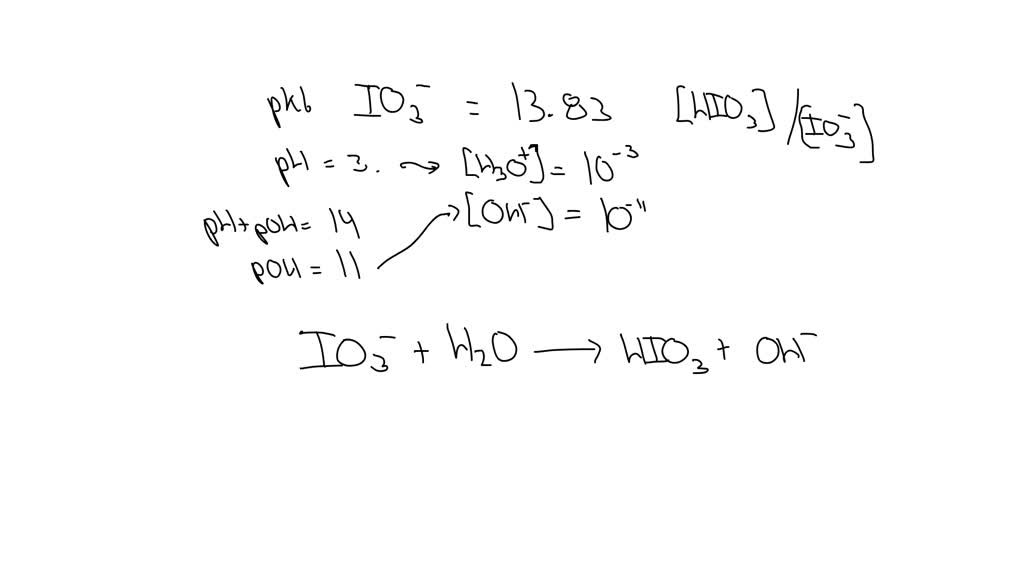 pkb IO₃⁻ = 13.83 [HIO₃]/[IO₃⁻]
pH = 3. → [H₃O⁺] = 10⁻³
pH + pOH = 14 → [OH⁻] = 10⁻¹¹
pOH = 11
IO₃⁻ + H₂O → HIO₃ + OH⁻